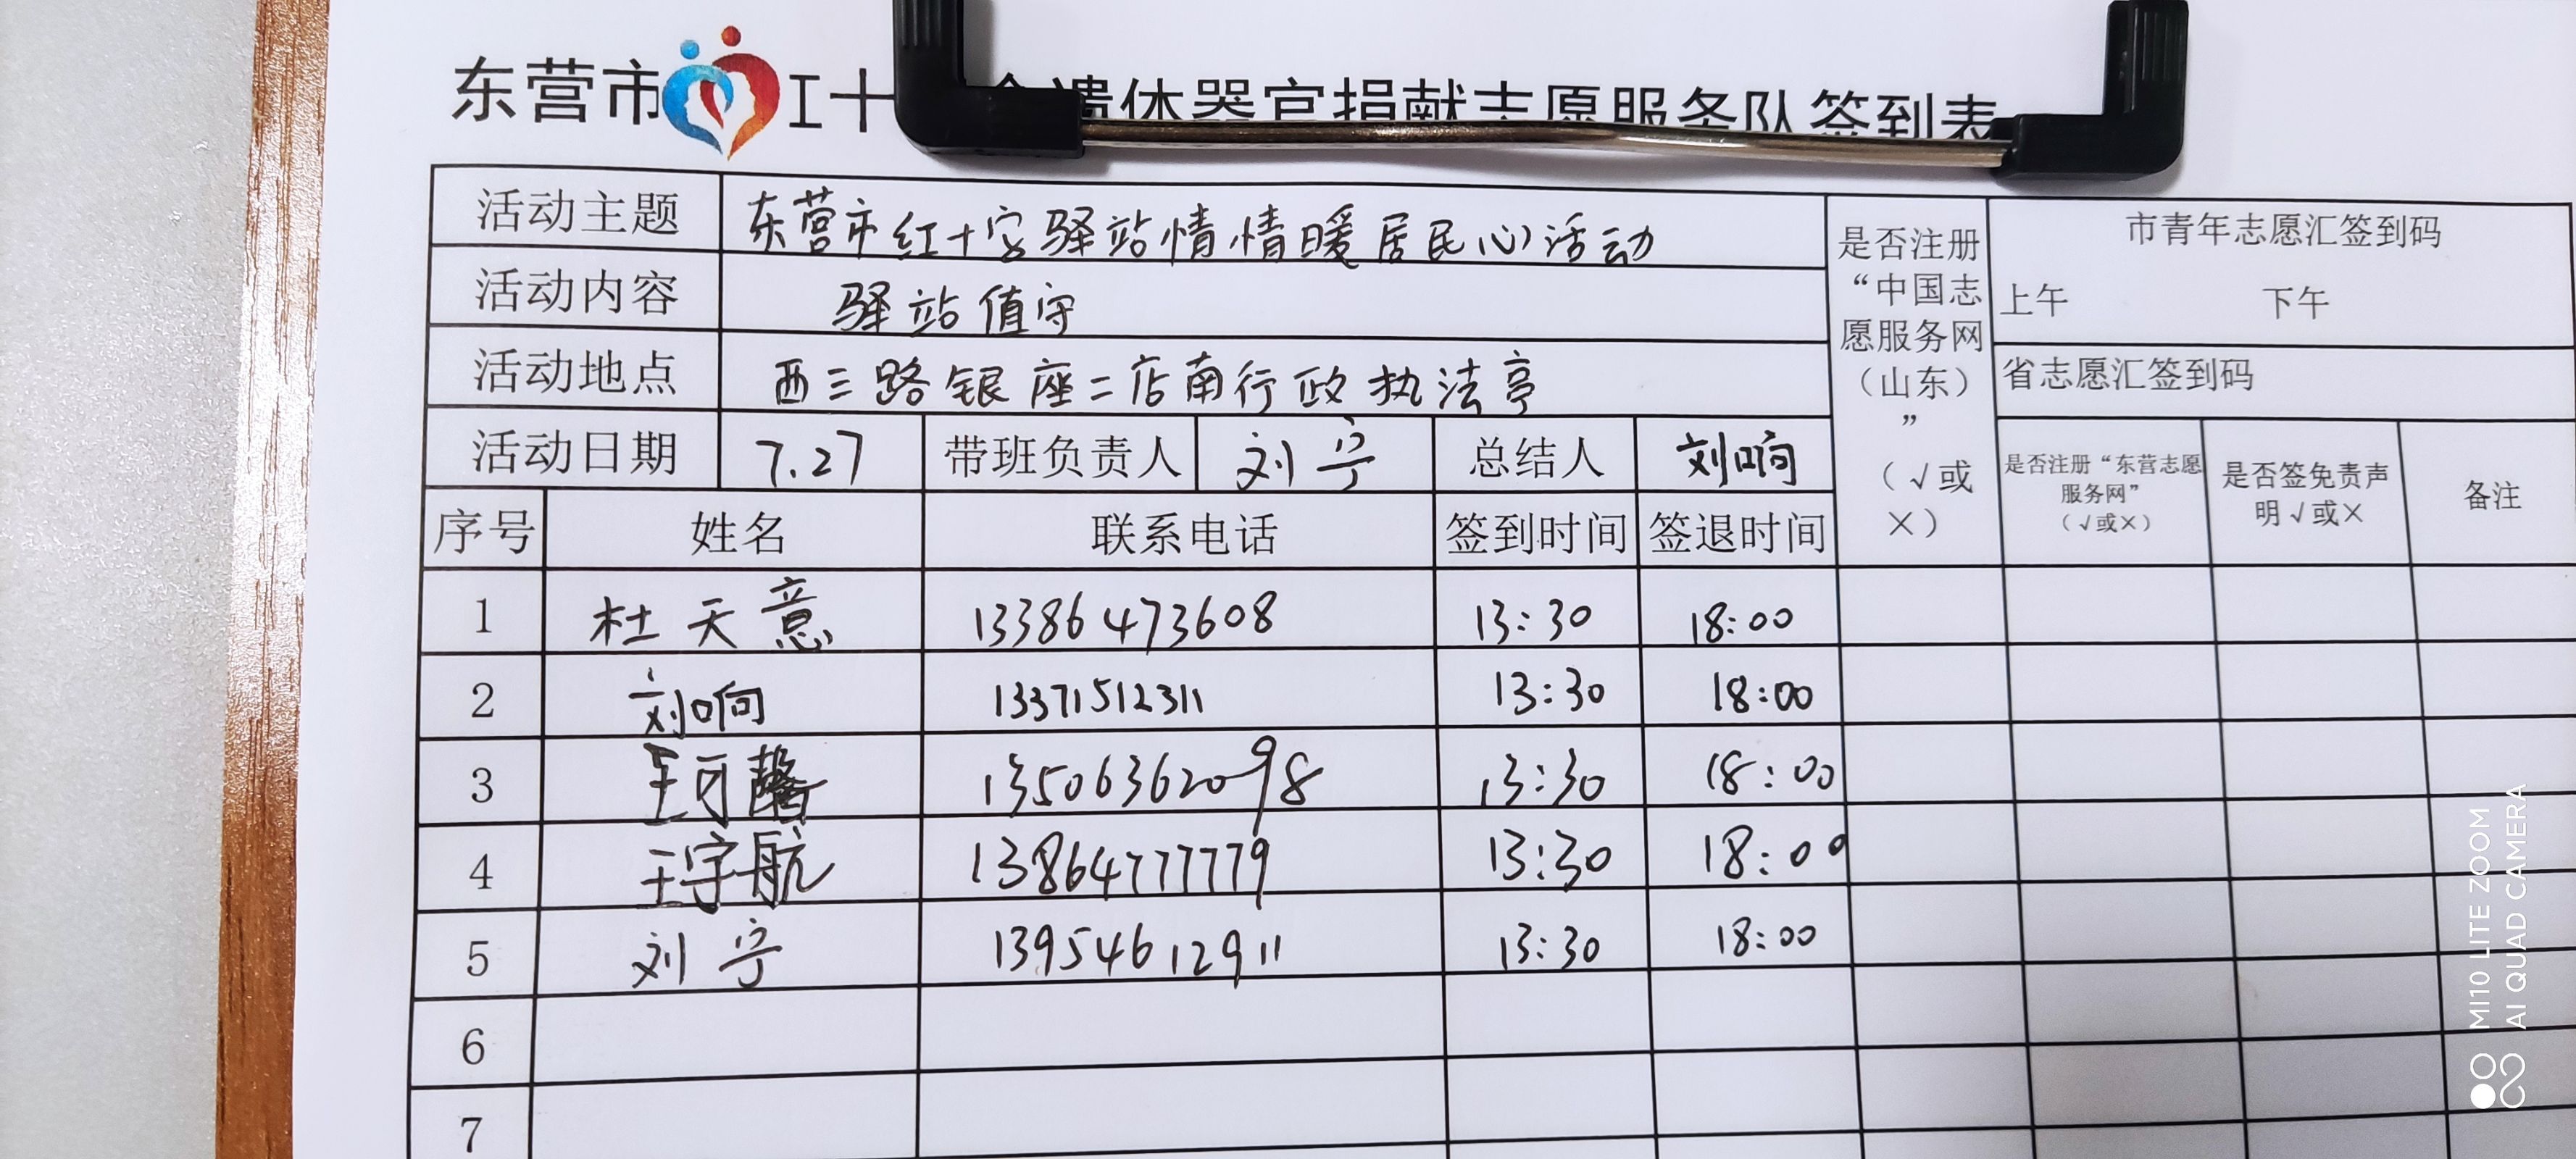 东营市 十 遗体器官捐献志愿服务队签到表
活动主题 东营市红十字驿站情情暖居民心活动
活动内容 驿站值守
活动地点 西三路银座二店南行政执法亭
活动日期 7.27 带班负责人 刘宁 总结人 刘响
是否注册
“中国志
愿服务网
（山东）
”
（√或
×）
市青年志愿汇签到码
上午 下午
省志愿汇签到码
是否注册“东营志愿
服务网”
（√或×）
是否签免责声
明√或×
备注
序号 姓名 联系电话 签到时间 签退时间
1 杜天意 13386473608 13:30 18:00
2 刘响 13371512311 13:30 18:00
3 王可馨 13506362098 13:30 18:00
4 王宇航 13864777779 13:30 18:00
5 刘宁 13954612911 13:30 18:00
6
7
MI10 LITE ZOOM
AI QUAD CAMERA